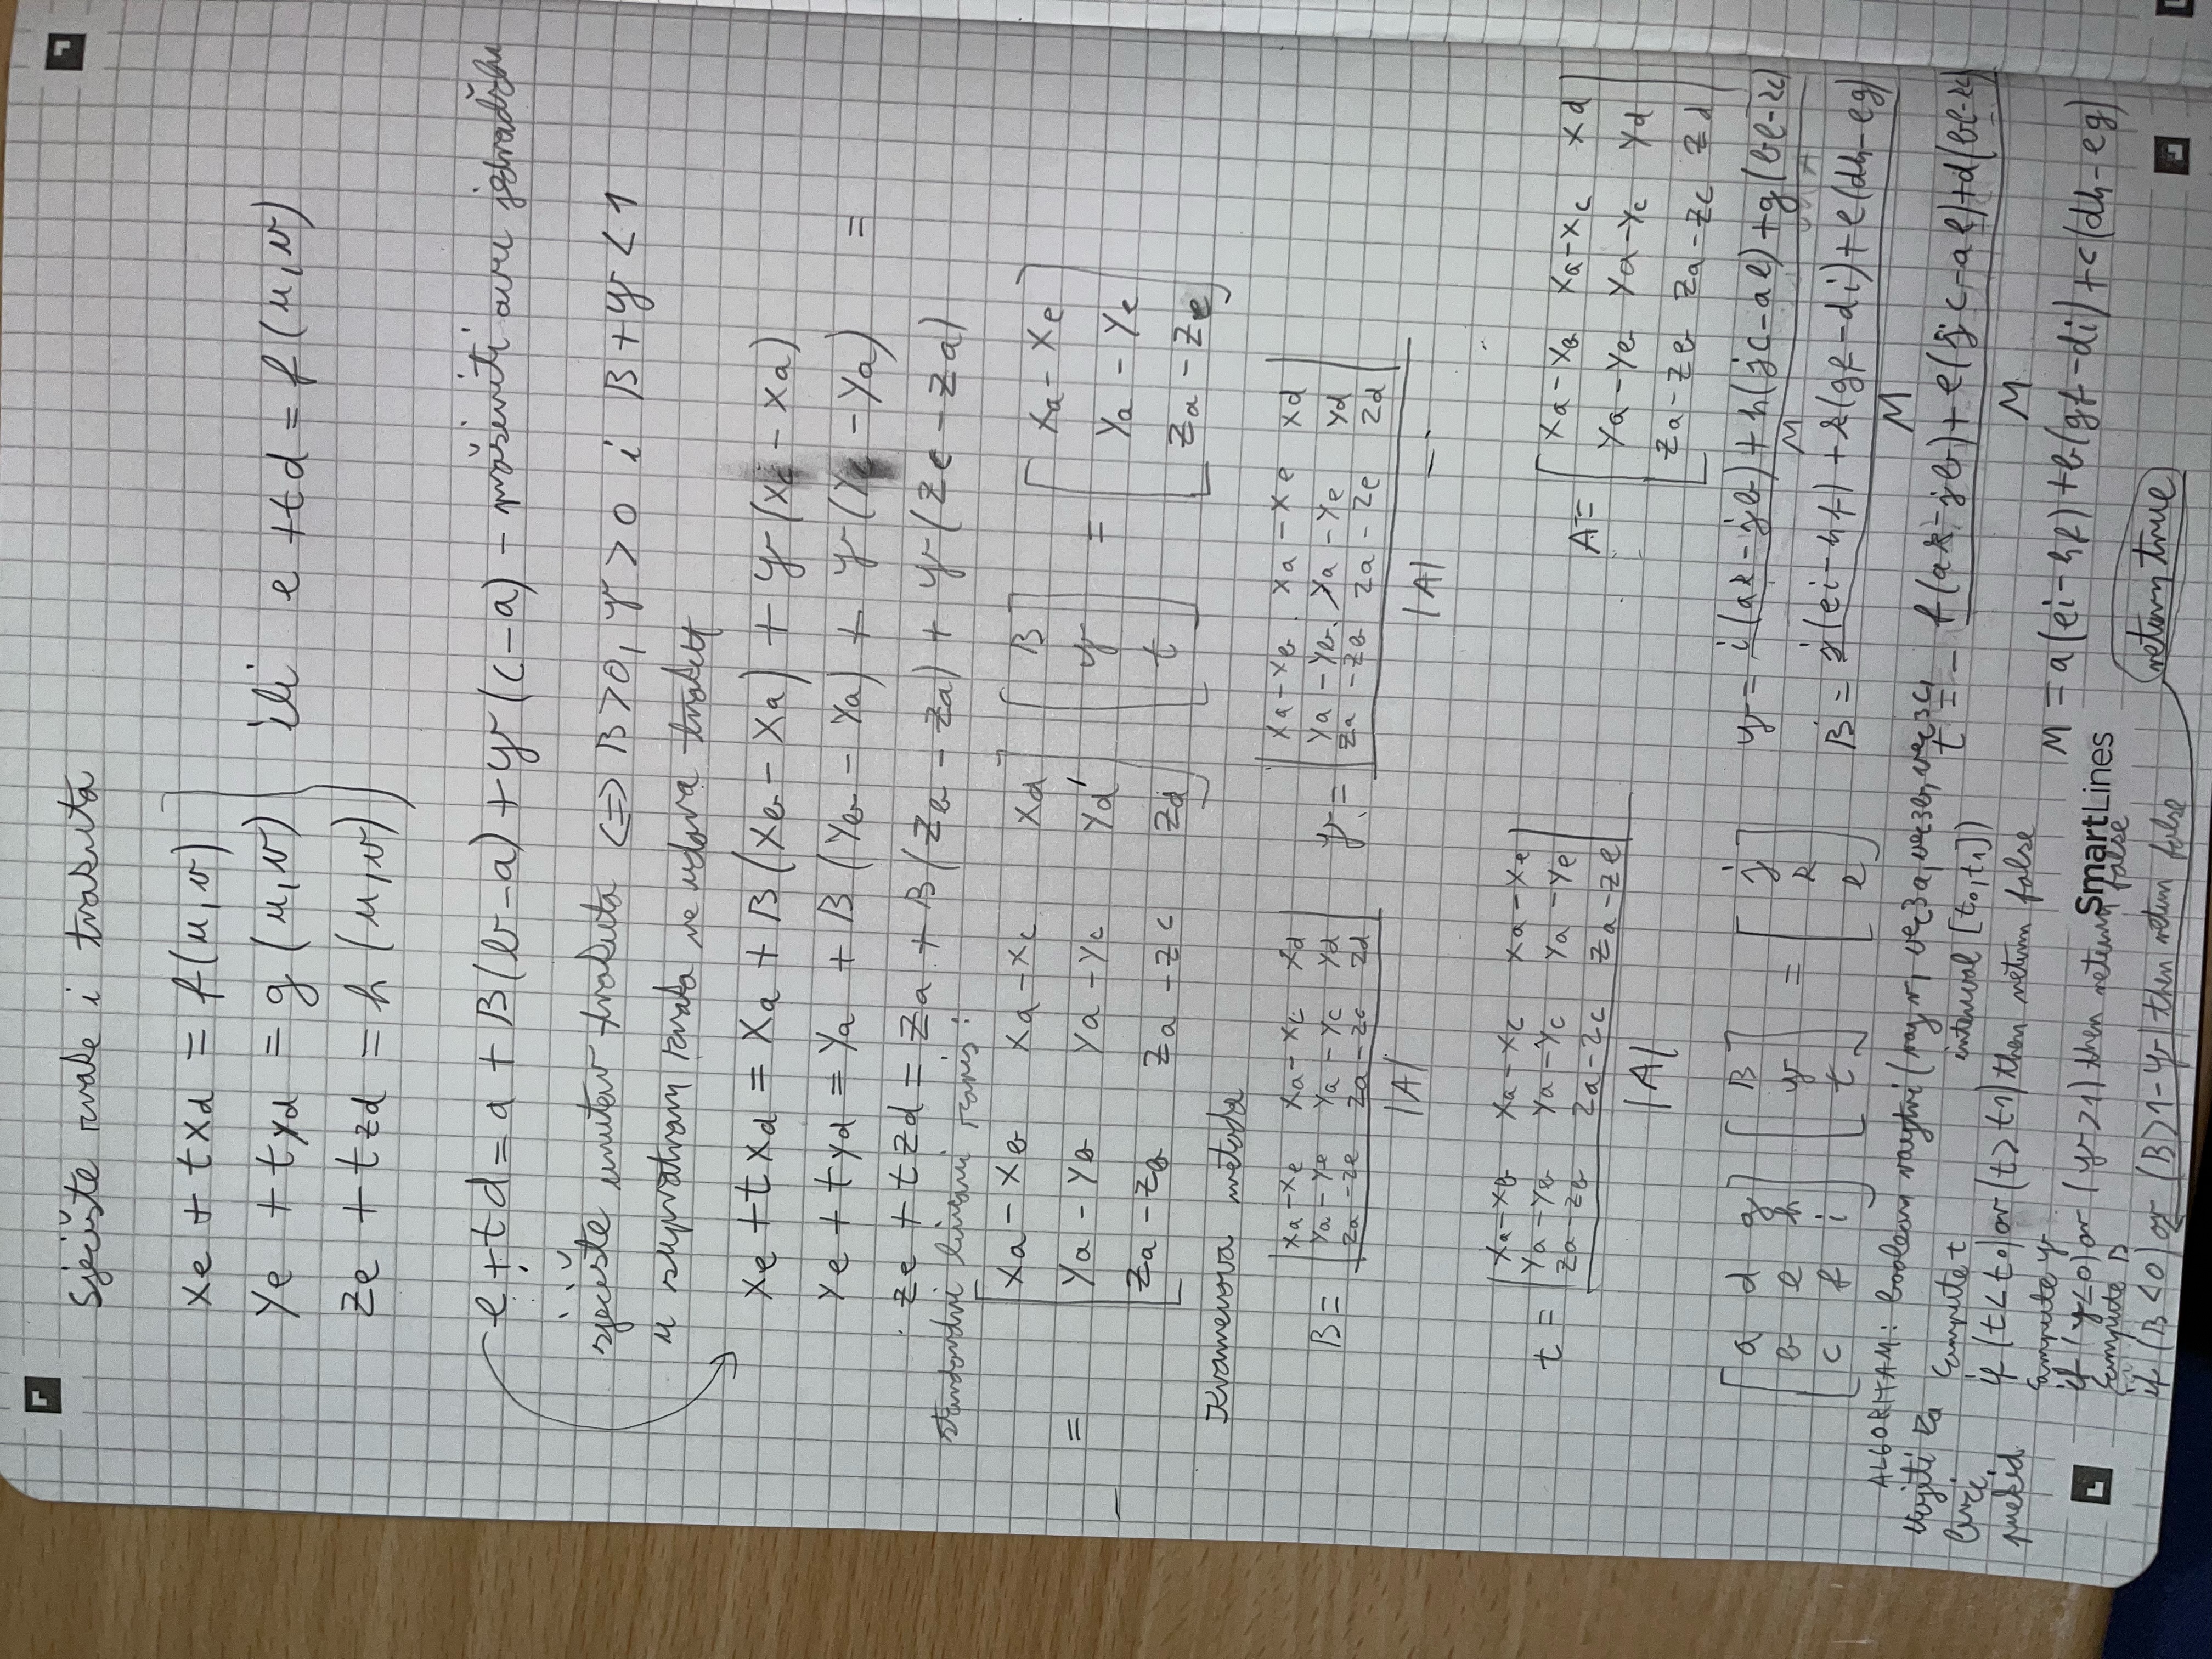 Sječište zrake i trokuta
xe + txd = f(u,v)
ye + tyd = g(u,v) ili e + td = f(u,v)
ze + tzd = h(u,v)
e + td = a + β(b-a) + γ(c-a) - proširiti ovu jednadžbu
sječište unutar trokuta <=> β>0, γ>0 i β+γ<1
u suprotnom zraka ne udara trokut
xe + txd = xa + β(xb - xa) + γ(xc - xa)
ye + tyd = ya + β(yb - ya) + γ(yc - ya) =
ze + tzd = za + β(zb - za) + γ(zc - za)
standardni linearni zapis:
xa - xb xa - xc xd β xa - xe
= ya - yb ya - yc yd γ = ya - ye
za - zb za - zc zd t za - ze
Kramerova metoda
xa-xe xa-xc xd xa-xb xa-xe xd
β = ya-ye ya-yc yd γ = ya-yb ya-ye yd
za-ze za-zc zd za-zb za-ze zd
|A| |A|
xa-xb xa-xc xa-xe
t = ya-yb ya-yc ya-ye
za-zb za-zc za-ze
|A|
xa-xb xa-xc xd
A = ya-yb ya-yc yd
za-zb za-zc zd
a d g β j
b e h γ = k
c f i t l
γ = i(ak-jb) + h(jc-al) + g(bl-kc)
M
β = j(ei-hf) + k(gf-di) + l(dh-eg)
M
t = - f(ak-jb) + e(jc-al) + d(bl-kc)
M
M = a(ei-hf) + b(gf-di) + c(dh-eg)
ALGORITAM: boolean raytri (ray r, vec3 a, vec3 b, vec3 c,
interval [t0,t1])
za
brži
prekid
compute t
if (t<t0) or (t>t1) then return false
compute γ
if (γ<0) or (γ>1) then return false
compute β
if (β<0) or (β>1-γ) then return false
return true
SmartLines